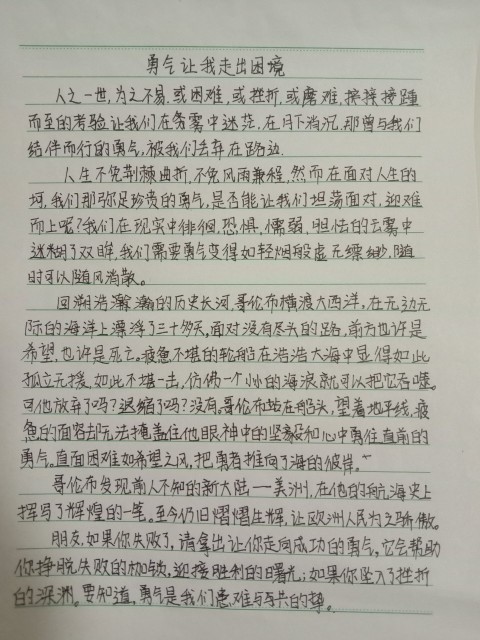 勇气让我走出困境
人之一世,为之不易.或困难,或挫折,或磨难,接接接踵
而至的考验让我们在雾雾中迷茫.在月下消沉,那曾与我们
结伴而行的勇气,被我们丢弃在路边.
人生不免荆棘曲折,不免风雨兼程.然而在面对人生的
坷,我们那弥足珍贵的勇气,是否能让我们坦荡面对,迎难
而上呢?我们在现实中徘徊,恐惧,懦弱,胆怯的云雾中
迷糊了双眸,我们需要勇气变得如轻烟般虚无缥缈,随
时可以随风消散。
回溯浩瀚瀚的历史长河,哥伦布横渡大西洋,在无边无
际的海洋上漂浮了三十多天,面对没有尽头的路,前方也许是
希望,也许是死亡。疲惫不堪的轮船在浩浩大海中显得如此
孤立无援,如此不堪一击,仿佛一个小小的海浪就可以把它吞噬。
可他放弃了吗?退缩了吗?没有。哥伦布站在船头,望着地平线,疲
惫的面容却无法掩盖住他眼神中的坚毅和心中勇往直前的
勇气。直面困难如希望之风,把勇者推向了海的彼岸。
哥伦布发现前人不知的新大陆——美洲,在他的航海史上
挥写了辉煌的一笔。至今仍旧熠熠生辉,让欧洲人民为之骄傲。
朋友,如果你失败了,请拿出让你走向成功的勇气,它会帮助
你挣脱失败的枷锁,迎接胜利的曙光;如果你坠入了挫折
的深渊。要知道,勇气是我们患难与共的